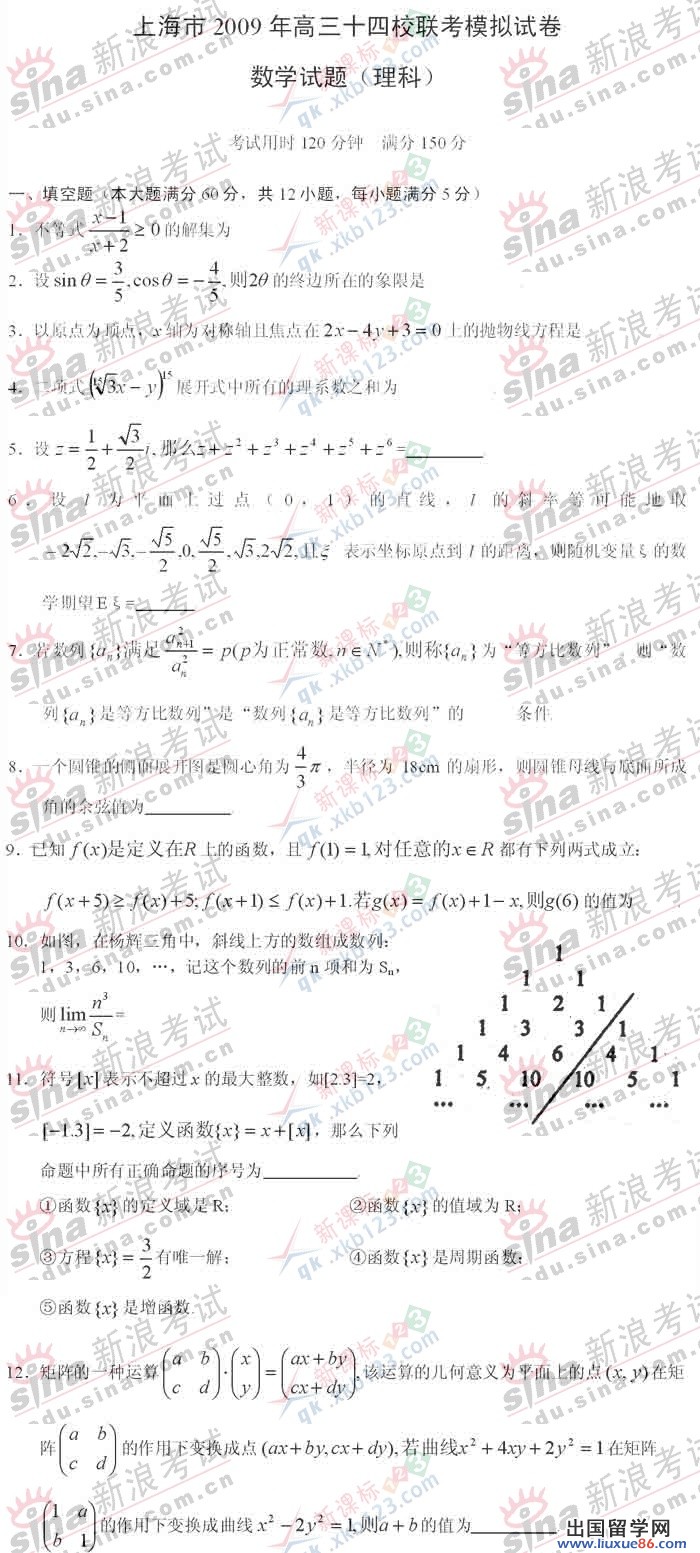 上海市 2009 年高三十四校联考模拟试卷
数学试题（理科）
考试用时 120 分钟 满分 150 分
一、填空题（本大题满分 60 分，共 12 小题，每小题满分 5 分）
1．不等式 (x−1)/(x+2) ≥ 0 的解集为
2．设 sinθ = 3/5, cosθ = −4/5, 则2θ 的终边所在的象限是
3．以原点为顶点，x 轴为对称轴且焦点在 2x−4y+3=0 上的抛物线方程是
4．二项式 (¹⁵√3x−y)¹⁵ 展开式中所有的理系数之和为
5．设 z = 1/2 + (√3/2)i, 那么z+z²+z³+z⁴+z⁵+z⁶=
6．设 l 为平面上过点（0，1）的直线，l 的斜率等可能地取
−2√2, −√3, −√5/2, 0, √5/2, √3, 2√2, 且ξ 表示坐标原点到 l 的距离，则随机变量 ξ 的数
学期望 E ξ =
7．若数列{aₙ}满足 a²ₙ₊₁/a²ₙ = p(p为正常数, n∈N*), 则称{aₙ} 为“等方比数列”．则“数
列{aₙ}是等方比数列”是“数列{aₙ}是等方比数列”的 条件.
8．一个圆锥的侧面展开图是圆心角为 4/3 π，半径为 18cm 的扇形，则圆锥母线与底面所成
角的余弦值为
9．已知 f(x)是定义在R 上的函数，且 f(1)=1, 对任意的x∈R 都有下列两式成立：
f(x+5)≥f(x)+5; f(x+1)≤f(x)+1.若g(x)=f(x)+1−x, 则g(6) 的值为
10．如图，在杨辉三角中，斜线上方的数组成数列：
1，3，6，10，…，记这个数列的前 n 项和为 Sₙ，
则 lim n→∞ n³/Sₙ =
1
1 1
1 2 1
1 3 3 1
1 4 6 4 1
1 5 10 10 5 1
… … … …
11．符号[x]表示不超过 x 的最大整数，如[2.3]=2，
[−1.3]=−2, 定义函数{x}=x+[x]，那么下列
命题中所有正确命题的序号为
①函数{x}的定义域是 R； ②函数{x}的值域为 R；
③方程{x}=3/2 有唯一解； ④函数{x}是周期函数；
⑤函数{x}是增函数.
12．矩阵的一种运算 (a b; c d)·(x; y) = (ax+by; cx+dy), 该运算的几何意义为平面上的点 (x, y) 在矩
阵 (a b; c d) 的作用下变换成点 (ax+by, cx+dy), 若曲线x²+4xy+2y²=1 在矩阵
(1 a; b 1) 的作用下变换成曲线 x²−2y²=1, 则a+b 的值为
出国留学网
www.liuxue86.com
sina 新浪考试
edu.sina.com.cn
新课标123
qk.xkb123.com